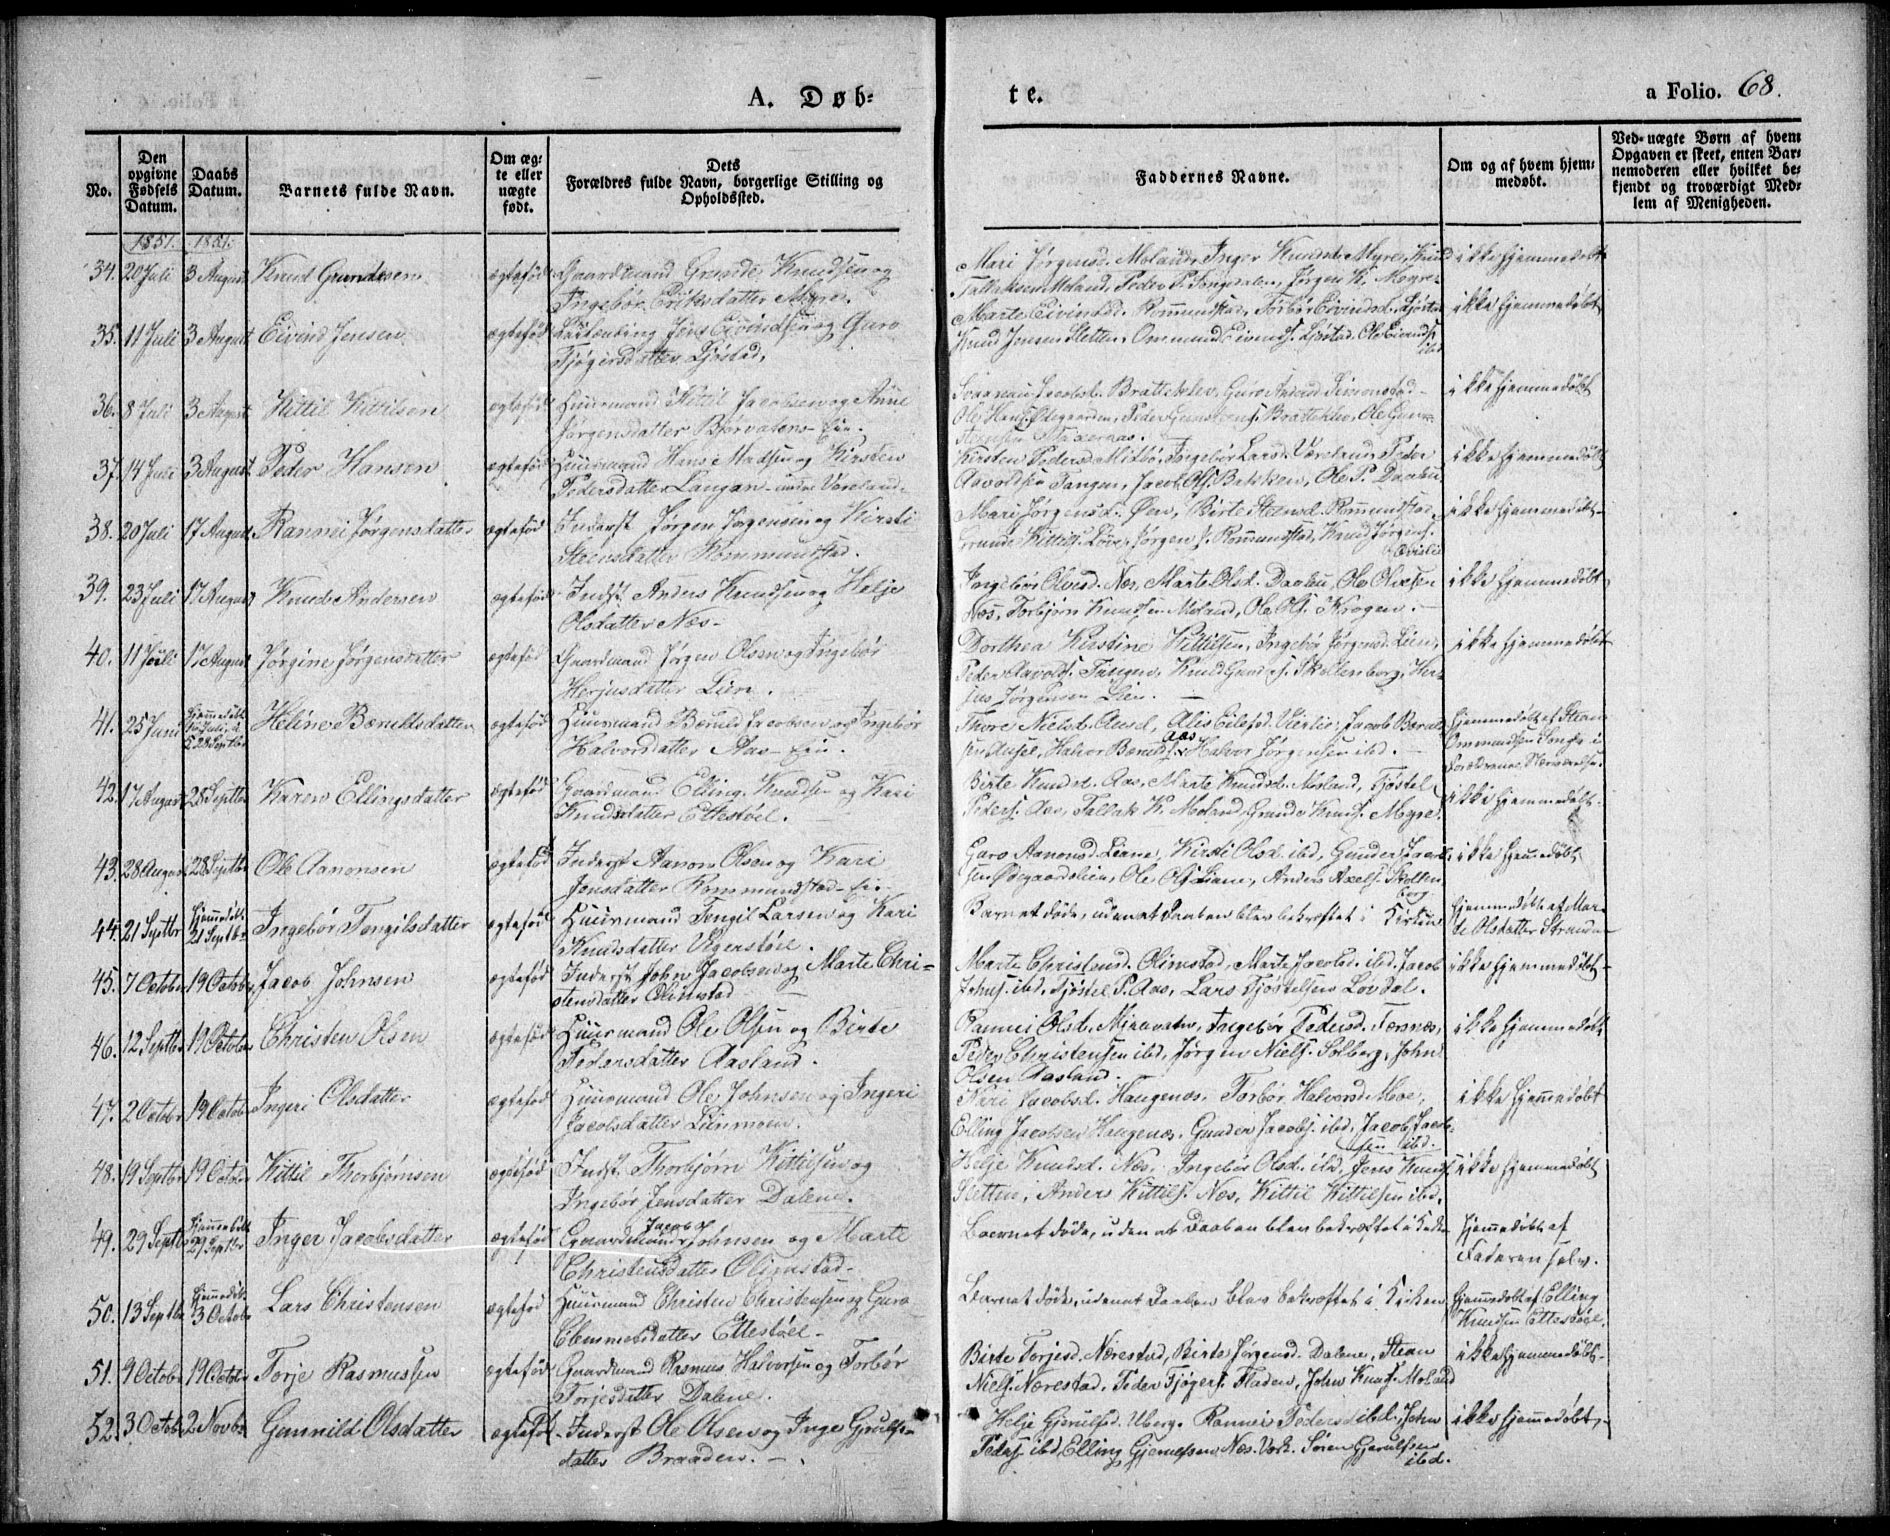 A. Døb=
te.
a Folio. 68.
No.
Den opgivne Fødsels Datum.
Daabs Datum.
Barnets fulde Navn.
Om æg= te eller nægte født.
Dets Forældres fulde Navn, borgerlige Stilling og Opholdssted.
Faddernes Navne.
Om og af hvem hjem= medøbt.
Ved unægte Børn af hvem Opgaven er skeet, enten Bar= nemoderen eller hvilket be= kjendt og troværdigt Med= lem af Menigheden.
1851. 1851.
34. 20 Juli 3 August Knud Gundesen ægtefød Gaardmand Gunde Knudsen og
Ingebør Eriksdatter Myre.
Mari Jørgensd. Moland, Inger Knudsd. Myre, Knud
Tallaksen Moland, Peder P. Jørgen K. Myre
ikke hjemmedøbt
35. 11 Juli 3 August Eivind Jensen ægtefød Jens Eivindsen og Guro
Tjøgersdatter Ljøstad,
Marte Eivindsd. Rommundstad, Torbør Eivindsd. Ljøstad
Knud Jensen Sletten, Ommund Eivinds. Ljøstad, Ole Eivinds.
ibd
ikke hjemmedøbt
36. 8 Juli 3 August Kittil Kittilsen ægtefød Huusmand Kittil Jacobsen og Anne
Jørgensdatter Bjorvatens-Eie.
Jacobsd. Bratteklev, Guro Simonstad
Ole Hans. Ødegaarden, Peder Bratteklev, Ole Gun=
ikke hjemmedøbt
37. 14 Juli 3 August Peder Hansen ægtefød Huusmand Hans Madsen og Kirsten
Pedersdatter Langan under Væreland
Kirsten Pedersd. Mitbø, Ingebør Larsd. Væreland, Peder
Aavoldsen Tangen, Jacob Ols. Bakken, Ole P. Daabu
ikke hjemmedøbt
38. 20 Juli 17 August Rannei Jørgensdatter ægtefød Inderst Jørgen Jørgensen og Kirsti
Steensdatter Rommundstad.
Mari Jørgensd. Øen, Birte Steensd. Rommundstad,
Gunde Kittils. Løve, Jørgen J. Rommundstad, Knud Jørgens.
ikke hjemmedøbt
39. 23 Juli 17 August Knud Andersen ægtefød Indst. Anders Knudsen og Helje
Olsdatter Næs
Ingebør Olsd. Næs, Marte Olsd. Daabu, Ole Olsen
Næs, Torbjørn Knudsen Moland, Ole Ols. Krogen.
ikke hjemmedøbt
40. 11 Juli 17 August Jørgine Jørgensdatter ægtefød Gaardmand Jørgen Olsen og Ingebør
Herjusdatter Lien.
Dorthea Kirstine Kittilsen, Ingebør Jørgensd. Lien,
Peder Aavolds. Tangen, Knud Gunders. Skollenborg, Her=
jus Jørgensen Lien.
ikke hjemmedøbt
41. 25 Juni Hjemmedøbt Juli, i K. 28 Septbr Heline Berulfsdatter ægtefød Huusmand Berulf Jacobsen og Ingebør
Halvorsdatter Aas-Eie.
Thore Nielsd. Ausel, Alis Eilefsd. Jacob Berulf=
sen Ausel, Halvor Berulfs. Aas Halvor Jørgensen ibd.
Hjemmedøbt af Stean
Ommundsen Songe i
Forældrenes Nærværelse.
42. 17 August 28 Septbr Karen Ellingsdatter ægtefød Gaardmand Elling Knudsen og Kari
Knudsdatter Ettestøel.
Birte Knudsd. Aas, Marte Knudsd. Moland, Tjøstel
Peders. Aas, Tallak K. Moland, Gunde Knuds. Myre.
ikke hjemmedøbt
43. 28 August 28 Septbr Ole Aanonsen ægtefød Inderst Aanon Olsen og Kari
Jonsdatter Rommundstad-Eie
Guro Aanonsd. Liane, Kirsti Olsd. ibd, Gunder Jacob=
sen Ødegaardslien, Ole Ols. Liane, Anders Axels. Skollen
borg
ikke hjemmedøbt
44. 21 Septbr Hjemmedøbt 21 Septbr Ingebør Tengilsdatter ægtefød Huusmand Tengil Larsen og Kari
Knudsdatter Vegenstøel.
Barnet døde, uden at Daaben blev bekræftet i Kirken
Hjemmedøbt af Mar=
te Olsdatter Strande
45. 7 October 19 October Jacob Johnsen ægtefød Inderst John Jacobsen og Marte Chri=
stensdatter Olimstad
Marte Christensd. Olimstad, Marte Jacobsd. ibd. Jacob
Johns. ibd. Tjøstel P. Aas, Lars Tjøstelsen Løvdal.
ikke hjemmedøbt
46. 12 Septbr 19 October Christen Olsen ægtefød Huusmand Ole Olsen og Birte
Pedersdatter Aasland.
Rannei Olsd. Mjaavatn, Ingebør Pedersd. Torsnæs,
Peder Christensen ibd, Jørgen Niels. Solberg, John
Olsen Aasland.
ikke hjemmedøbt
47. 2 Octobr 19 Octobr Ingeri Olsdatter ægtefød Huusmand Ole Johnsen og Ingeri
Jacobsdatter Lienmoen.
Kari Jacobsd. Haugenæs, Torbør Halvorsd. Moe,
Elling Jacobsen Haugenæs, Gunder Jacobs. ibd, Jacob Jacob=
sen ibd.
ikke hjemmedøbt
48. 19 Septbr 19 October Kittil Thorbjørnsen ægtefød Indst. Thorbjørn Kittilsen og
Ingebør Jensdatter Dalene.
Helje Knudsd. Næs, Ingebør Olsd. ibd, Jens Knuds.
Sletten, Anders Kittils. Næs, Kittil Kittilsen ibd.
ikke hjemmedøbt
49. 29 Septbr Hjemmedøbt 29 Septbr Inger Jacobsdatter ægtefød Gaardmand Jacob Johnsen og Marte
Christensdatter Olimstad
Barnet døde, uden at Daaben blev bekræftet i Kirken
Hjemmedøbt af
Faderen selv.
50. 13 Septbr Hjemmedøbt 3 Octobr Lars Christensen ægtefød Huusmand Christen Christensen og Guro
Clemmetsdatter Ettestøel
Barnet døde, uden at Daaben blev bekræftet i Kirken
Hjemmedøbt af Elling
Knudsen Ettestøel.
51. 9 October 19 Octobr Torje Rasmussen ægtefød Gaardmand Rasmus Halvorsen og Torbør
Torjesdatter Dalene.
Birte Torjesd. Nærestad, Birte Jørgensd. Dalene, Stean
Niels. Nærestad, Peder Tjøgers. Fladen, John Knuds. Moland
ikke hjemmedøbt
52. 3 Octobr 2 Novbr Gunnild Olsdatter ægtefød Inderst Ole Olsen og Inge Gjerulfs=
datter Braaden.
Helje Gjerulfsd. Uberg, Rannei Pedersd. ibd. John
Peders. ibd, Elling Gjerulfsen Næs Verk. Søren Gjerulfsen
ibd.
ikke hjemmedøbt